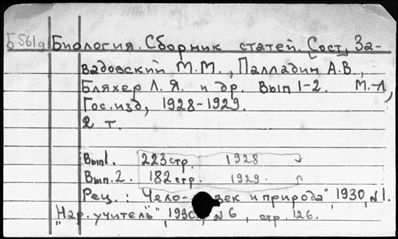 Б561д Биология. Сборник статей. Сост. За-
вадовский М.М., Палладин А.В.,
Бляхер Л.Я. и др. Вып 1-2. М.-Л,
Гос.изд, 1928-1929.
2 т.
Вып1. 223стр. 1928
Вып.2. 182стр. 1929.
Рец.: "Чело- век и природа", 1930, №1.
"Нар. учитель", 1930, №6, стр. 126.